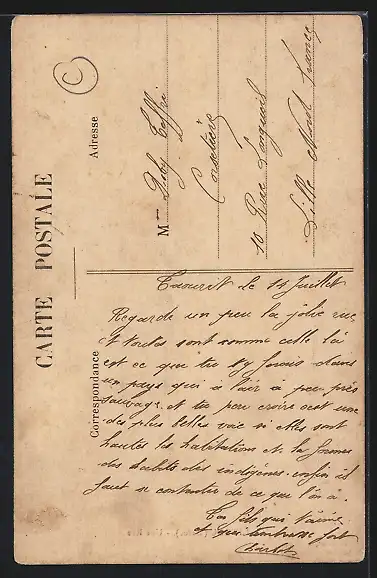 CARTE POSTALE
Correspondance
Adresse
M
Corsetière
10 Rue
Lille Nord France
Taourirt le 14 Juillet
Regarde un peu la jolie rue
et toutes sont comme celle là
est ce que tu t'y ferais dans
un pays qui a l'air à peu près
sauvage et tu peu croire c'est une
des plus belles voie si elles sont
hautes les habitations et la formes
des habits des indigènes enfin il
faut se contenter de ce que l'on a.
Ton fils qui t'aime
et qui t'embrasse fort
Charlot